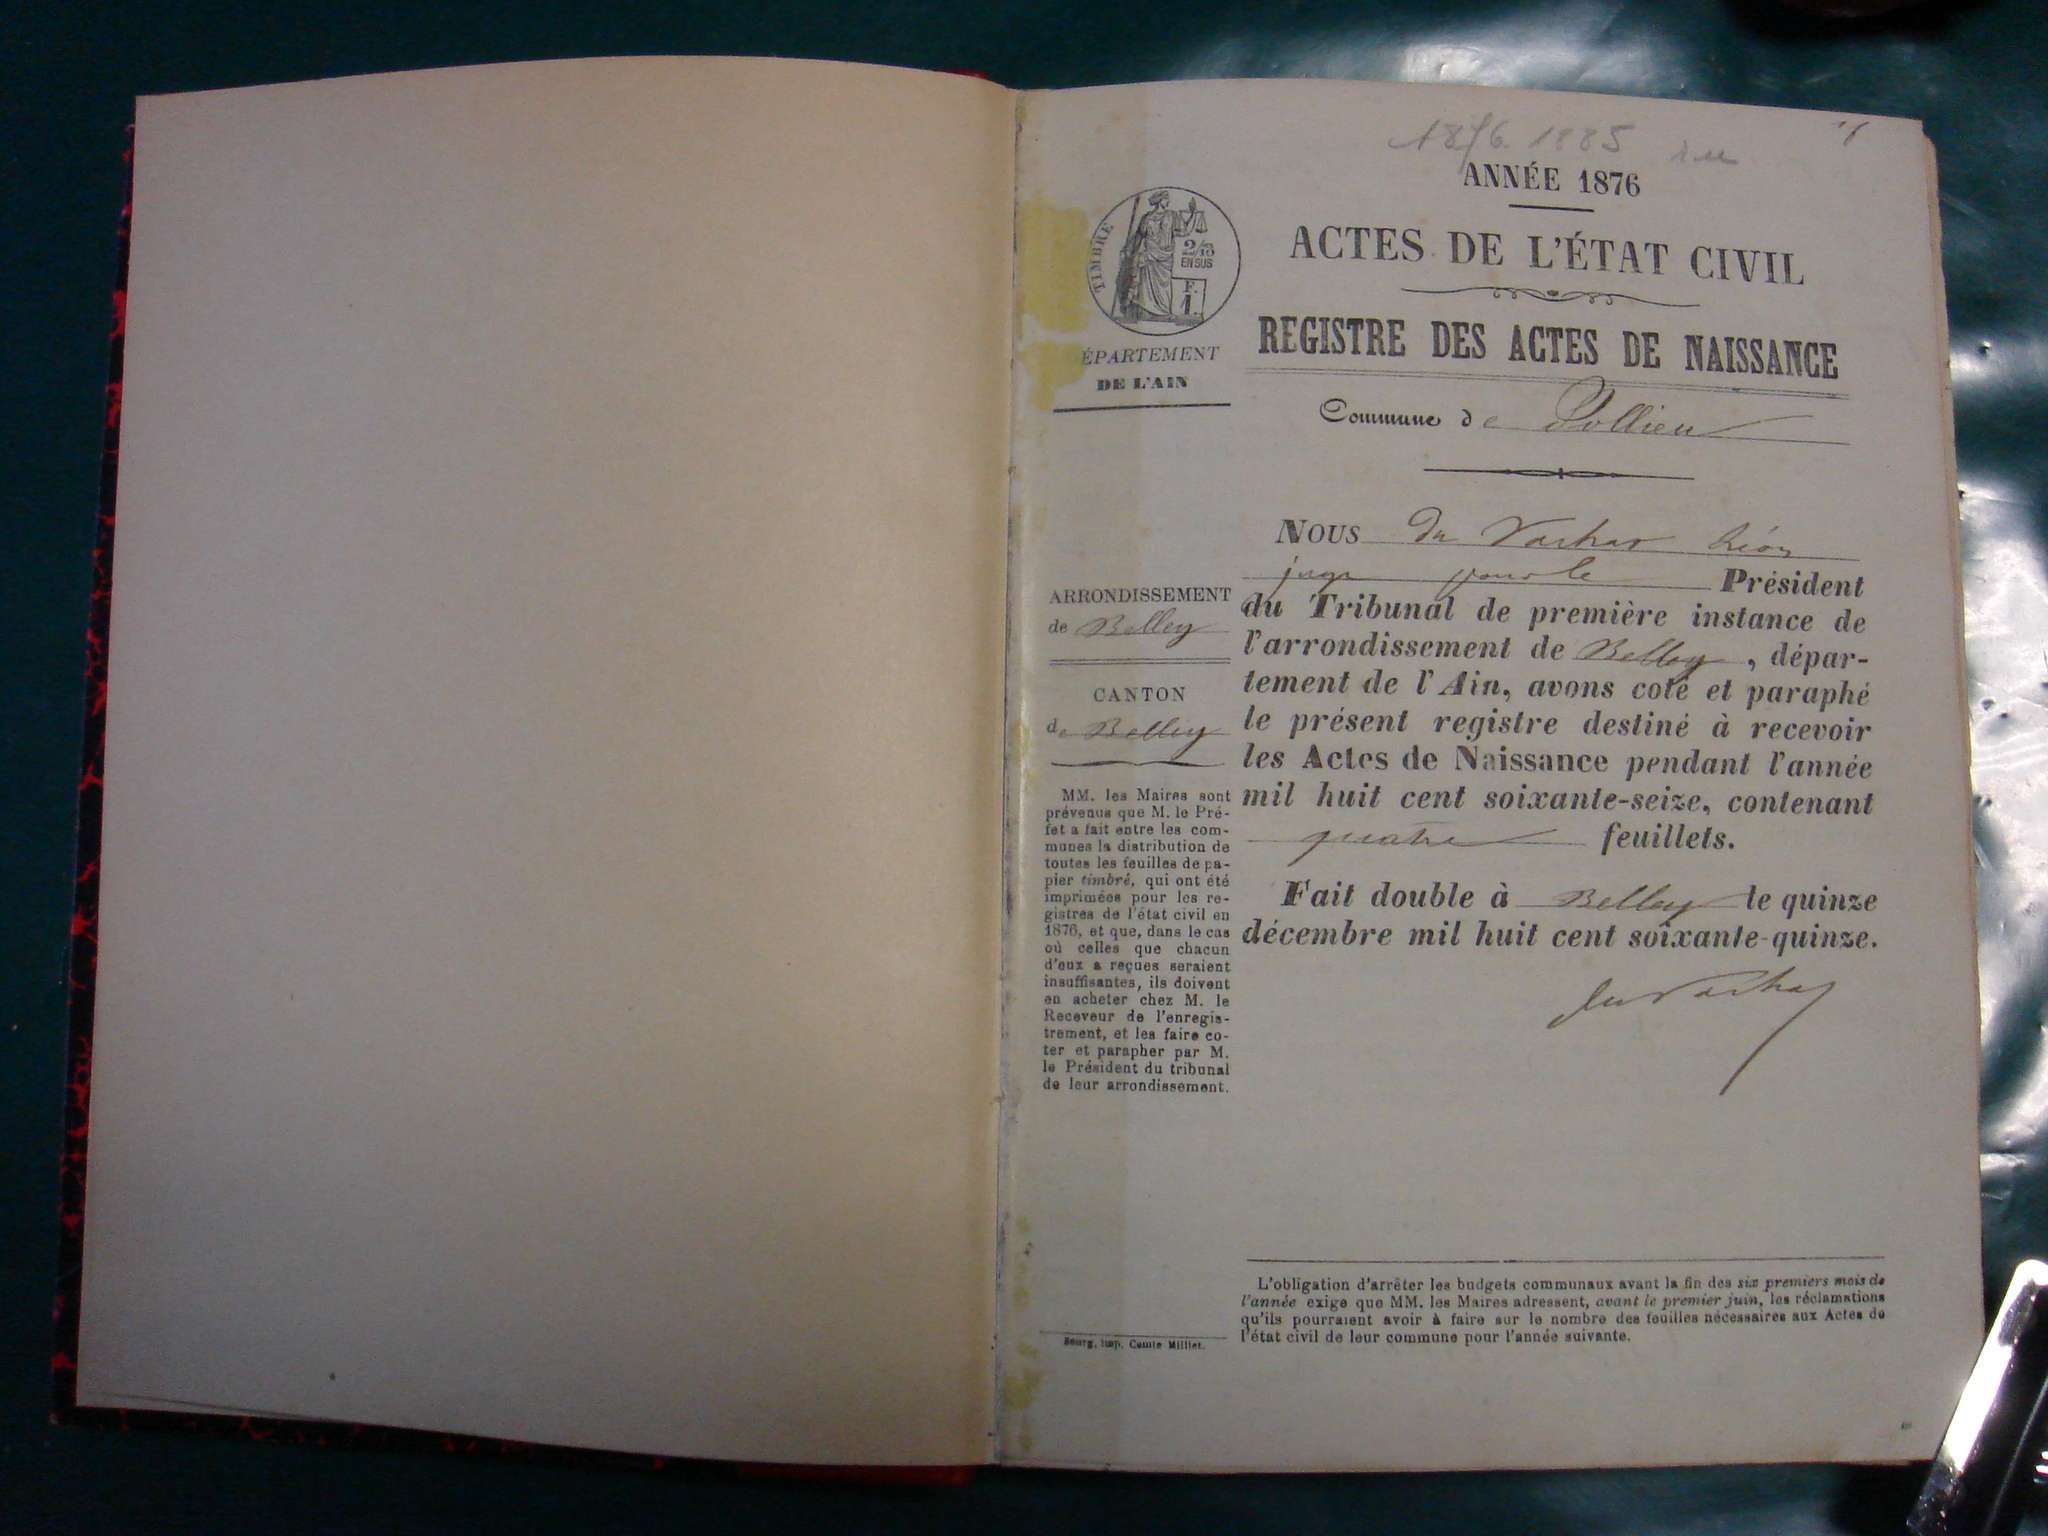 1876 1885
ANNÉE 1876
ACTES DE L'ÉTAT CIVIL
REGISTRE DES ACTES DE NAISSANCE
Commune de Pollieu
TIMBRE
2/10
EN SUS
F.
1.
ÉPARTEMENT
DE L'AIN
ARRONDISSEMENT
de Belley
CANTON
de Belley
MM. les Maires sont
prévenus que M. le Pré-
fet a fait entre les com-
munes la distribution de
toutes les feuilles de pa-
pier timbré, qui ont été
imprimées pour les re-
gistres de l'état civil en
1876, et que, dans le cas
où celles que chacun
d'eux a reçues seraient
insuffisantes, ils doivent
en acheter chez M. le
Receveur de l'enregis-
trement, et les faire co-
ter et parapher par M.
le Président du tribunal
de leur arrondissement.
Bourg, imp. Comte Milliet.
NOUS du Vachat Léon
juge pour le Président
du Tribunal de première instance de
l'arrondissement de Belley, dépar-
tement de l'Ain, avons coté et paraphé
le présent registre destiné à recevoir
les Actes de Naissance pendant l'année
mil huit cent soixante-seize, contenant
quatre feuillets.
Fait double à Belley le quinze
décembre mil huit cent soixante-quinze.
du Vachat
L'obligation d'arrêter les budgets communaux avant la fin des six premiers mois de
l'année exige que MM. les Maires adressent, avant le premier juin, les réclamations
qu'ils pourraient avoir à faire sur le nombre des feuilles nécessaires aux Actes de
l'état civil de leur commune pour l'année suivante.